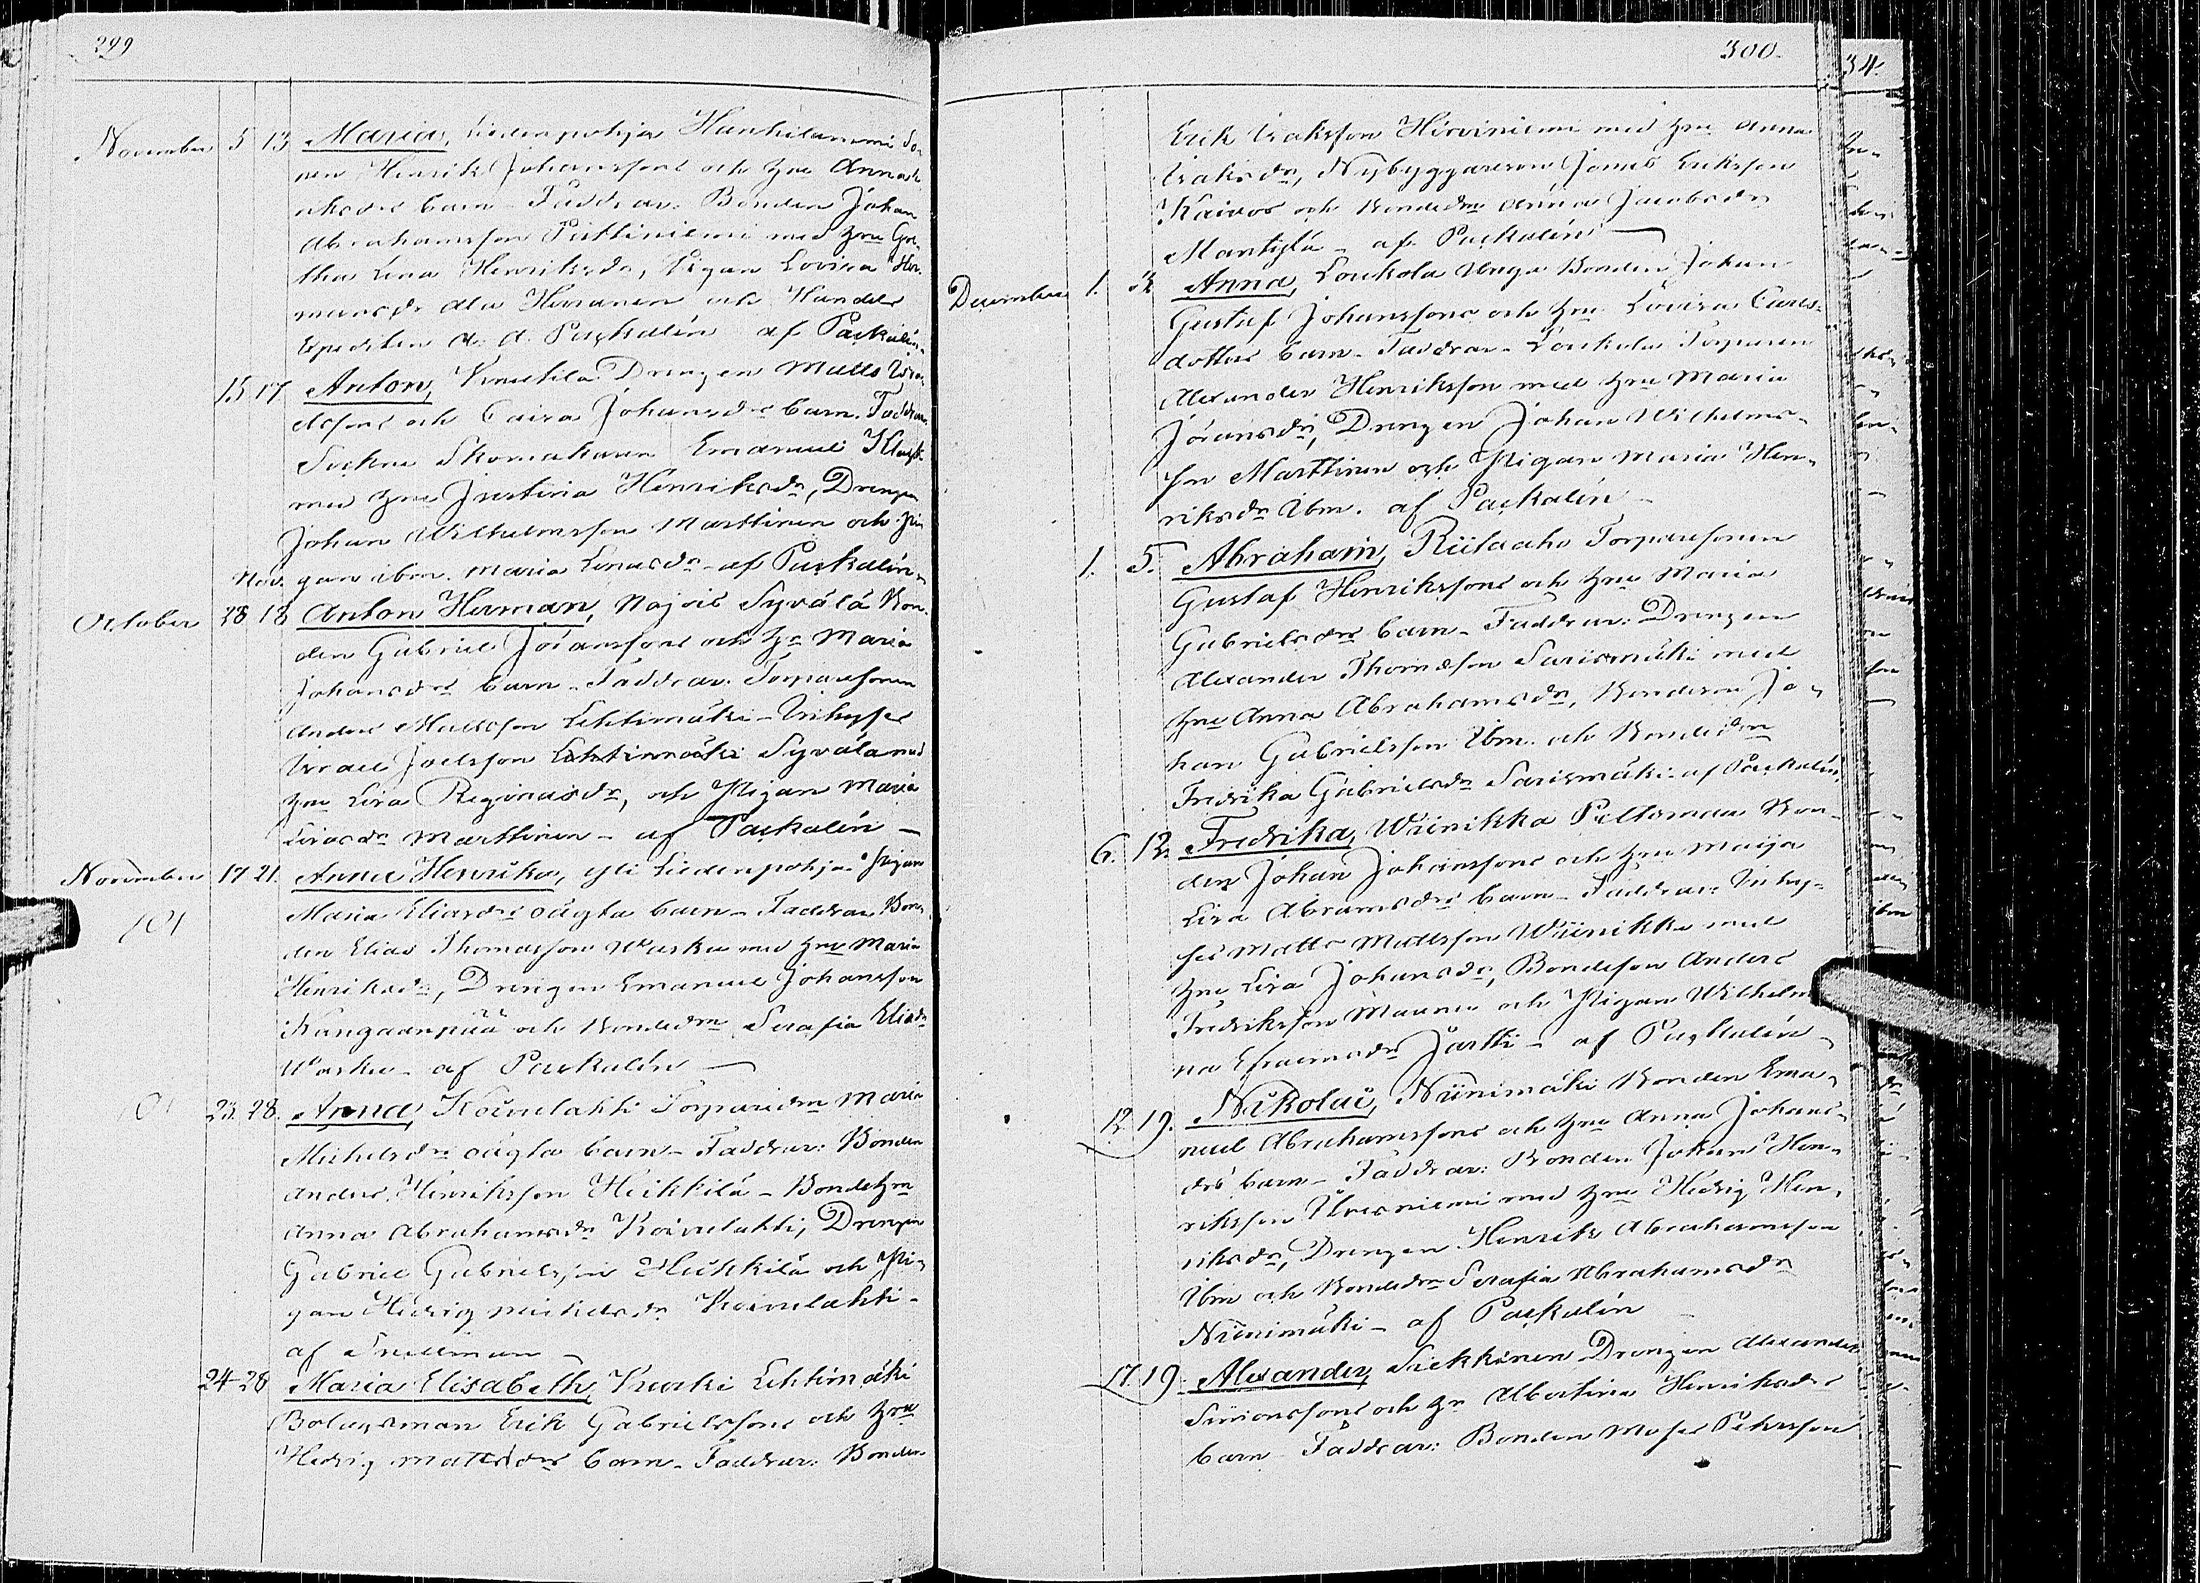 299
November 5 13 Maria, Liedenpohja Hunkilammi So-
nen Henrik Johanssons och hu Anna
barn Faddrar: Bonden Johan
Abrahamsson Puttiniemi med hu Gre-
tha Lena Henriksdr, Pigan Lovisa Her-
mansdr Ala Honanen och Handels
Expediten A. A. Paskalin af Paskalin
15 17 Anton, Drengen Matts
och Caisa Johansdrs barn. Faddrar
Sockne Skomakaren Emanuel
med hu Justina Henriksdr, Drengen
Johan Wilhelmsson Marttinen och Pi-
Nov. gan ibm. Maria Linusdr af Paskalin
October 28 18 Anton Herman, Majoie Syvälä Bon-
den Gabriel Göranssons och hu Maria
Johansdrs barn Faddrar: Torparesonen
Anders Mattsson Lehtimäki Inhyses
Israel Joelsson Lehtimäki Syvälä med
hu Lisa Reginasdr, och Pigan Maria
Liisasdr Marttinen af Paskalin
November 17 21. Anna Henrika, Yli Liedenpohja Pigan
Maria Eliasdrs oägta barn Faddrar, Bon-
den Elias Thomasson Waska med hu Maria
Henriksdr, Drengen Emanuel Johansson
Kangaanpää och Bondedrn Serafia Eliasdr
Waska af Paskalin
23. 28. Anna, Koivulahti Torparedrn Maria
Michelsdrs oägta barn Faddrar: Bonden
Anders Henriksson Heikkilä Bondehu
Anna Abrahamsdr Koivulahti, Drengen
Gabriel Gabrielsson Heikkilä och Pi-
gan Hedvig Mickelsdr Koivulahti
af Snellman
24 28 Maria Elisabeth, Kurki Lehtimäki
Bolagsman Erik Gabrielssons och hu
Hedvig Mattsdrs barn Faddrar: Bonden
300.
Erik Isaksson Hirviniemi med hu Anna
Isaksdr, Nybyggaresonen Jonas Eriksson
Kaivos och Bondedrn Anna Jacobsdr
Mantylä af Paskalin
December 1. Anna, Loukola Unga Bonden Johan
Gustaf Johanssons och hu Lovisa Carls-
dotters barn Faddrar Loukola Torparen
Alexander Henriksson med hu Maria
Göransdr, Drengen Johan Wilhelms-
son Marttinen och Pigan Maria Hen-
riksdr ibm. af Paskalin
1. 5. Abraham, Riitaaho Torparesonen
Gustaf Henrikssons och hu Maria
Gabrielsdrs barn Faddrar: Drengen
Alexander Thomasson Sarismäki med
hu Anna Abrahamsdr, Bondesonen Jo-
han Gabrielsson ibm. och Bondedrn
Fredrika Gabrielsdr Sarismäki af Paskalin
6. 12. Fredrika, Wiinikka Peltomaa Bon-
den Johan Johanssons och hu Maija
Lisa Abramsdrs barn Faddrar: Inhy-
ses Matts Mattsson Wiinikka med
hu Lisa Johansdr, Bondeson Anders
Fredriksson Maunu och Pigan Wilhelmi-
na Efraimsdr Jartti af Paskalin
12 19. Nikolai, Niinimäki Bonden Ema-
nuel Abrahamssons och hu Anna Johans-
drs barn Faddrar: Bonden Johan Hen-
riksson med hu Hedvig Hen-
riksdr, Drengen Henrik Abrahamsson
ibm och Bondedrn Serafia Abrahamsdr
Niinimäki af Paskalin
17. 19. Alexander, Siekkinen Drengen Alexander
Simonssons och hu Albertina Henriksdrs
barn Faddrar: Bonden Moses Petersson
34.